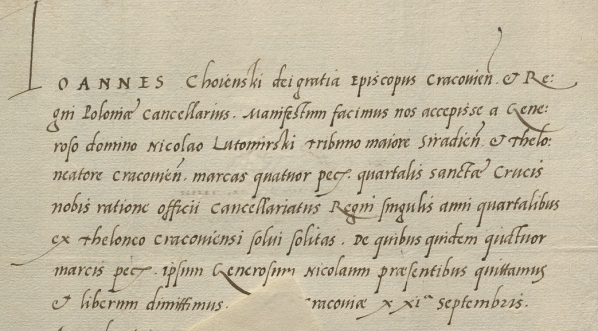 IOANNES Choienski dei gratia Episcopus Cracovien̄. & Re:
gni Poloniæ Cancellarius. Manifestum facimus nos accepisse a Gene:
roso domino Nicolao Lutomirski tribuno maiore Siradien̄. & thelo:
neatore Cracovien̄. marcas quatuor pec. quartalis sanctæ Crucis
nobis ratione officii Cancellariatus Regni singulis anni quartalibus
ex theloneo Cracoviensi solui solitas. De quibus quidem quatuor
marcis pec. ipsum Generosum Nicolaum præsentibus quittamus
& liberum dimittimus. Cracoviæ xxiᵃ Septembris.